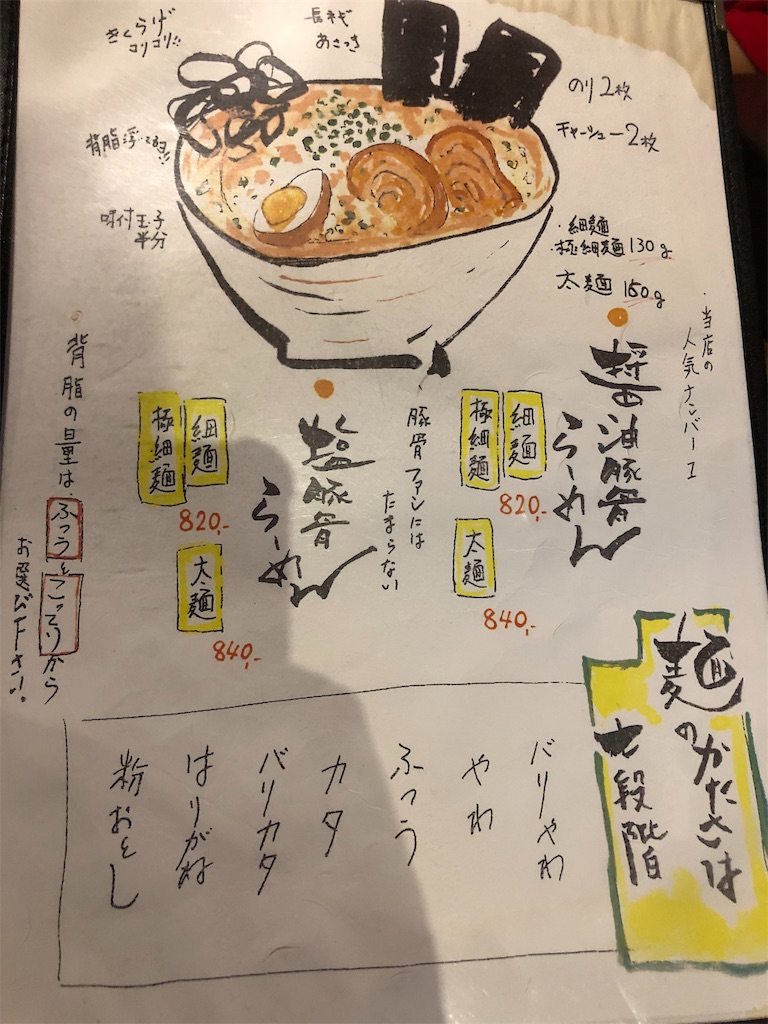 きくらげ
コリコリ!!
長ネギ
あさつき
のり2枚
チャーシュー2枚
味付玉子
半分
・細麺
・極細麺130g
太麺 150g
・当店の
人気ナンバー1
醤油豚骨
らーめん
細麺
極細麺
820,-
太麺
840,-
豚骨ファンには
たまらない
塩豚骨
らーめん
細麺
極細麺
820,-
太麺
840,-
背脂の量は
ふつうとこってりから
お選び下さい!
麺のかたさは
七段階
バリやわ
やわ
ふつう
カタ
バリカタ
はりがね
粉おとし